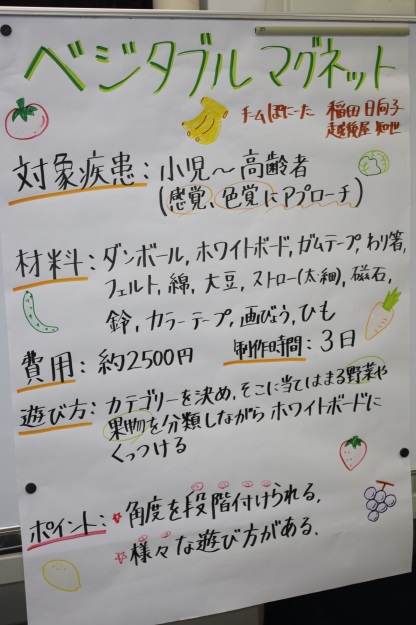 ベジタブルマグネット
チームぽにーた 稲田 日向子
越後屋 知世
対象疾患：小児～高齢者
(感覚、色覚にアプローチ)
材料：ダンボール,ホワイトボード,ガムテープ,わり箸,
フェルト,綿,大豆,ストロー(太・細),磁石,
鈴,カラーテープ,画びょう,ひも
費用：約2500円 制作時間：3日
遊び方：カテゴリーを決め,そこに当てはまる野菜や
果物を分類しながらホワイトボードに
くっつける
ポイント：☆角度を段階付けられる.
☆様々な遊び方がある.